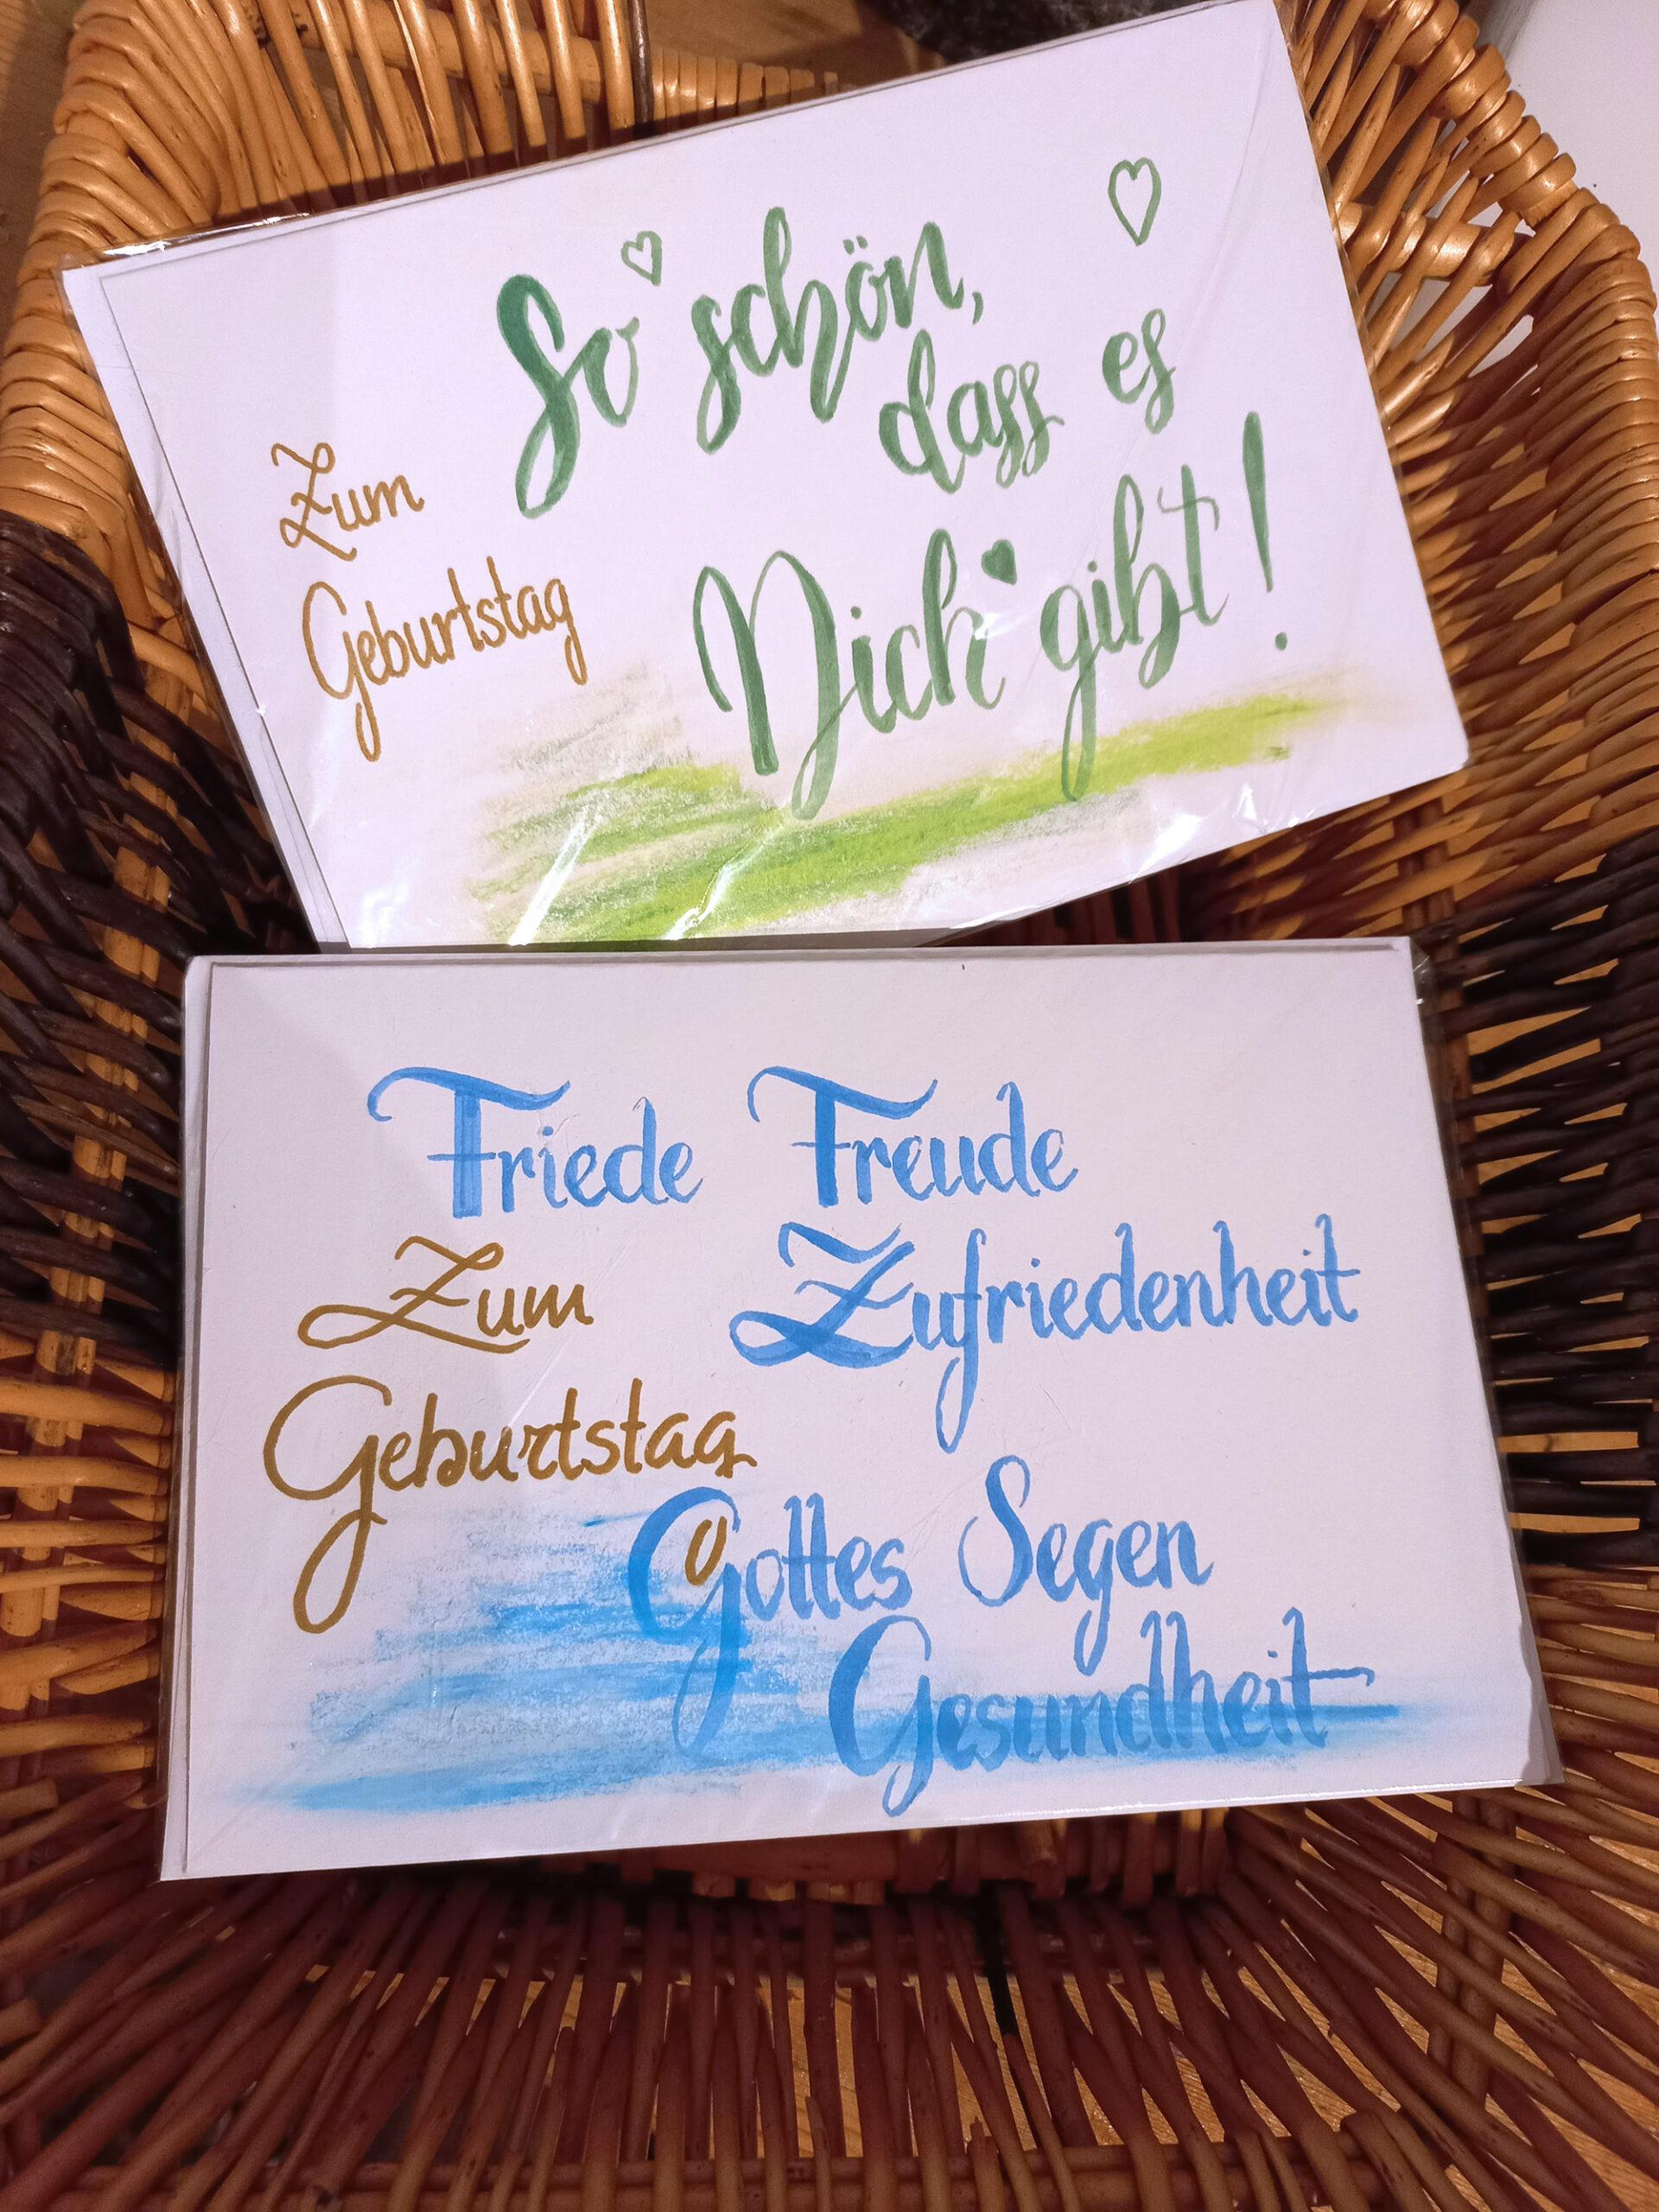 So schön,
dass es
Dich gibt!
Zum
Geburtstag
Friede Freude
Zufriedenheit
Zum
Geburtstag
Gottes Segen
Gesundheit